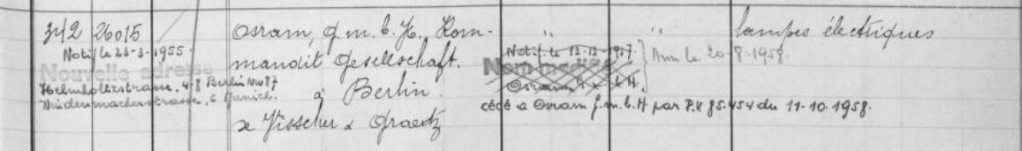 342 26015 Osram, G.m.b.H. Kom- " " lampes électriques
Notif. le 21-3-1955. mandit Gesellschaft. Notif. le 12-12-1957. Ann. le 20-8-1958.
Nouvelle adresse
Helmholtzstrasse, 4-8 Berlin NW 87 à Berlin. Osram G.m.b.H.
Windenmacherstrasse, 6 Munich. cédé à Osram G.m.b.H par P.V 85.454 du 11-10-1958.
De Visscher & Graetz